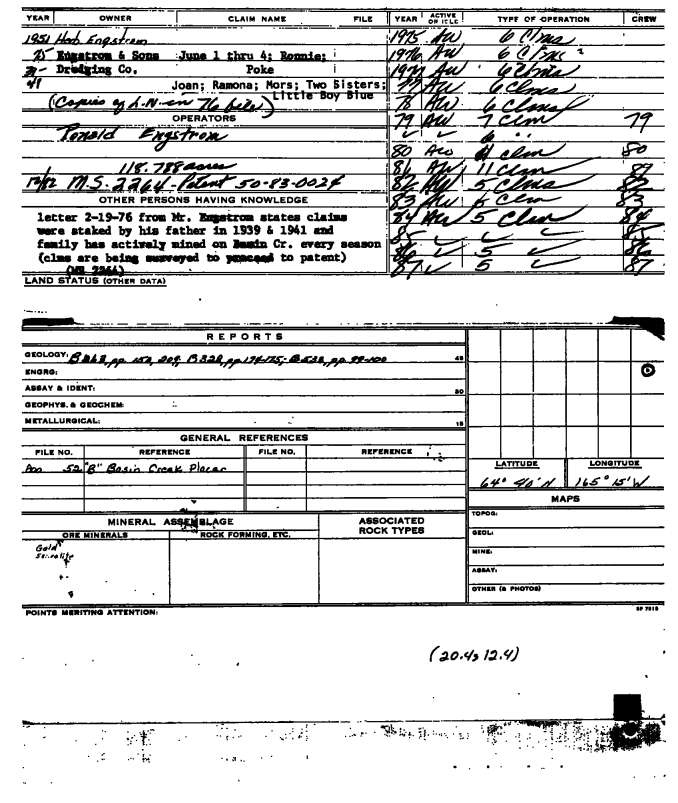 YEAR OWNER CLAIM NAME FILE YEAR ACTIVE OR IDLE TYPE OF OPERATION CREW
1951 Engstrom 1975 AW 6 Clms
75 Engstrom & Sons June 1 thru 4; Ronnie; 1976 AW 6 Clms
Dredging Co. Poke 1977 AW 6 Clms
Joan; Ramona; Mors; Two Sisters; 77 AW 6 Clms
Little Boy Blue
(Copies of L.N. in 76 file) 78 AW 6 Clms
OPERATORS 79 AW 7 Clm 79
Ronald Engstrom ✓ ✓ 6 "
80 AW clm 80
118.788 acres 81 AW 11 Clm
12/82 M.S. 2264 - Patent 50-83-0024 82 AW 5 Clms 82
OTHER PERSONS HAVING KNOWLEDGE 83 AW Clm 83
letter 2-19-76 from Mr. Engstrom states claims 84 AW 5 Clm 84
were staked by his father in 1939 & 1941 and 85 ✓ ✓ ✓ 85
family has actively mined on Basin Cr. every season 86 ✓ 5 ✓ 86
(clms are being surveyed to proceed to patent) 87 ✓ 5 ✓ 87
(MS 2264)
LAND STATUS (OTHER DATA)
REPORTS
GEOLOGY: B 263, pp. 152, 209; B 328, pp. 174-175; B 533, pp. 99-100 45
ENGRG:
ASSAY & IDENT: 30
GEOPHYS. & GEOCHEM:
METALLURGICAL: 15
GENERAL REFERENCES
FILE NO. REFERENCE FILE NO. REFERENCE
52 "B" Basin Creek Placer
LATITUDE LONGITUDE
64° 40' N 165° 15' W
MAPS
MINERAL ASSEMBLAGE ASSOCIATED ROCK TYPES
ORE MINERALS ROCK FORMING, ETC.
TOPOG:
GEOL:
MINE:
ASSAY:
OTHER (& PHOTOS)
Gold
POINTS MERITING ATTENTION:
(20.4, 12.4)